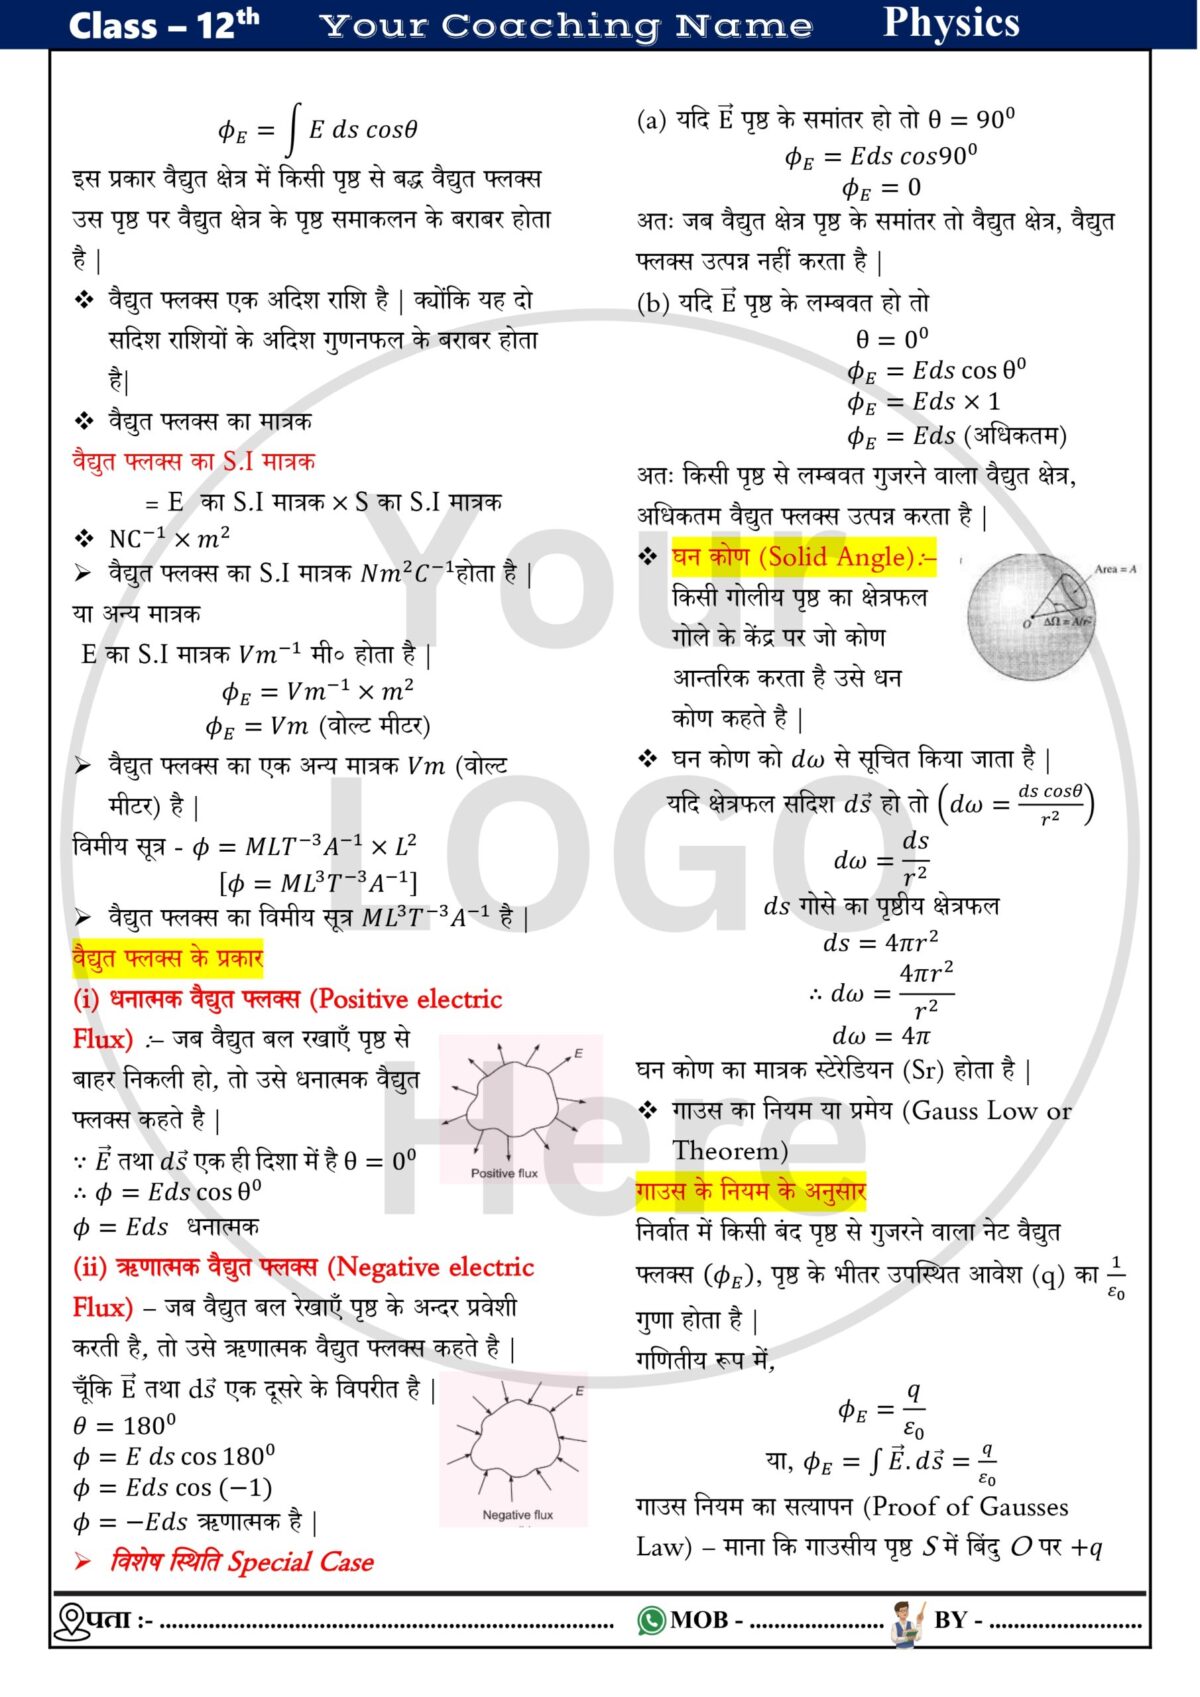 Class – 12th Your Coaching Name Physics
ϕ_E = ∫ E ds cosθ
इस प्रकार वैद्युत क्षेत्र में किसी पृष्ठ से बद्ध वैद्युत फ्लक्स
उस पृष्ठ पर वैद्युत क्षेत्र के पृष्ठ समाकलन के बराबर होता
है |
❖ वैद्युत फ्लक्स एक अदिश राशि है | क्योंकि यह दो
सदिश राशियों के अदिश गुणनफल के बराबर होता
है|
❖ वैद्युत फ्लक्स का मात्रक
वैद्युत फ्लक्स का S.I मात्रक
= E का S.I मात्रक × S का S.I मात्रक
❖ NC⁻¹ × m²
➢ वैद्युत फ्लक्स का S.I मात्रक Nm²C⁻¹होता है |
या अन्य मात्रक
E का S.I मात्रक Vm⁻¹ मी० होता है |
ϕ_E = Vm⁻¹ × m²
ϕ_E = Vm (वोल्ट मीटर)
➢ वैद्युत फ्लक्स का एक अन्य मात्रक Vm (वोल्ट
मीटर) है |
विमीय सूत्र - ϕ = MLT⁻³A⁻¹ × L²
[ϕ = ML³T⁻³A⁻¹]
➢ वैद्युत फ्लक्स का विमीय सूत्र ML³T⁻³A⁻¹ है |
वैद्युत फ्लक्स के प्रकार
(i) धनात्मक वैद्युत फ्लक्स (Positive electric
Flux) :– जब वैद्युत बल रखाएँ पृष्ठ से
बाहर निकली हो, तो उसे धनात्मक वैद्युत
फ्लक्स कहते है |
E
Positive flux
∵ E⃗ तथा ds⃗ एक ही दिशा में है θ = 0⁰
∴ ϕ = Eds cos θ⁰
ϕ = Eds धनात्मक
(ii) ऋणात्मक वैद्युत फ्लक्स (Negative electric
Flux) – जब वैद्युत बल रेखाएँ पृष्ठ के अन्दर प्रवेशी
करती है, तो उसे ऋणात्मक वैद्युत फ्लक्स कहते है |
चूँकि E⃗ तथा ds⃗ एक दूसरे के विपरीत है |
θ = 180⁰
ϕ = E ds cos 180⁰
ϕ = Eds cos (−1)
ϕ = −Eds ऋणात्मक है |
E
Negative flux
➢ विशेष स्थिति Special Case
(a) यदि E⃗ पृष्ठ के समांतर हो तो θ = 90⁰
ϕ_E = Eds cos90⁰
ϕ_E = 0
अतः जब वैद्युत क्षेत्र पृष्ठ के समांतर तो वैद्युत क्षेत्र, वैद्युत
फ्लक्स उत्पन्न नहीं करता है |
(b) यदि E⃗ पृष्ठ के लम्बवत हो तो
θ = 0⁰
ϕ_E = Eds cos θ⁰
ϕ_E = Eds × 1
ϕ_E = Eds (अधिकतम)
अतः किसी पृष्ठ से लम्बवत गुजरने वाला वैद्युत क्षेत्र,
अधिकतम वैद्युत फ्लक्स उत्पन्न करता है |
❖ घन कोण (Solid Angle):–
किसी गोलीय पृष्ठ का क्षेत्रफल
गोले के केंद्र पर जो कोण
आन्तरिक करता है उसे धन
कोण कहते है |
Area = A
O ΔΩ = A/r²
❖ घन कोण को dω से सूचित किया जाता है |
यदि क्षेत्रफल सदिश ds⃗ हो तो (dω = ds cosθ/r²)
dω = ds/r²
ds गोसे का पृष्ठीय क्षेत्रफल
ds = 4πr²
∴ dω = 4πr²/r²
dω = 4π
घन कोण का मात्रक स्टेरेडियन (Sr) होता है |
❖ गाउस का नियम या प्रमेय (Gauss Low or
Theorem)
गाउस के नियम के अनुसार
निर्वात में किसी बंद पृष्ठ से गुजरने वाला नेट वैद्युत
फ्लक्स (ϕ_E), पृष्ठ के भीतर उपस्थित आवेश (q) का 1/ε₀
गुणा होता है |
गणितीय रूप में,
ϕ_E = q/ε₀
या, ϕ_E = ∫ E⃗. ds⃗ = q/ε₀
गाउस नियम का सत्यापन (Proof of Gausses
Law) – माना कि गाउसीय पृष्ठ S में बिंदु O पर +q
Your
LOGO
Here
पता :- ........................................ MOB - .................... BY - ....................